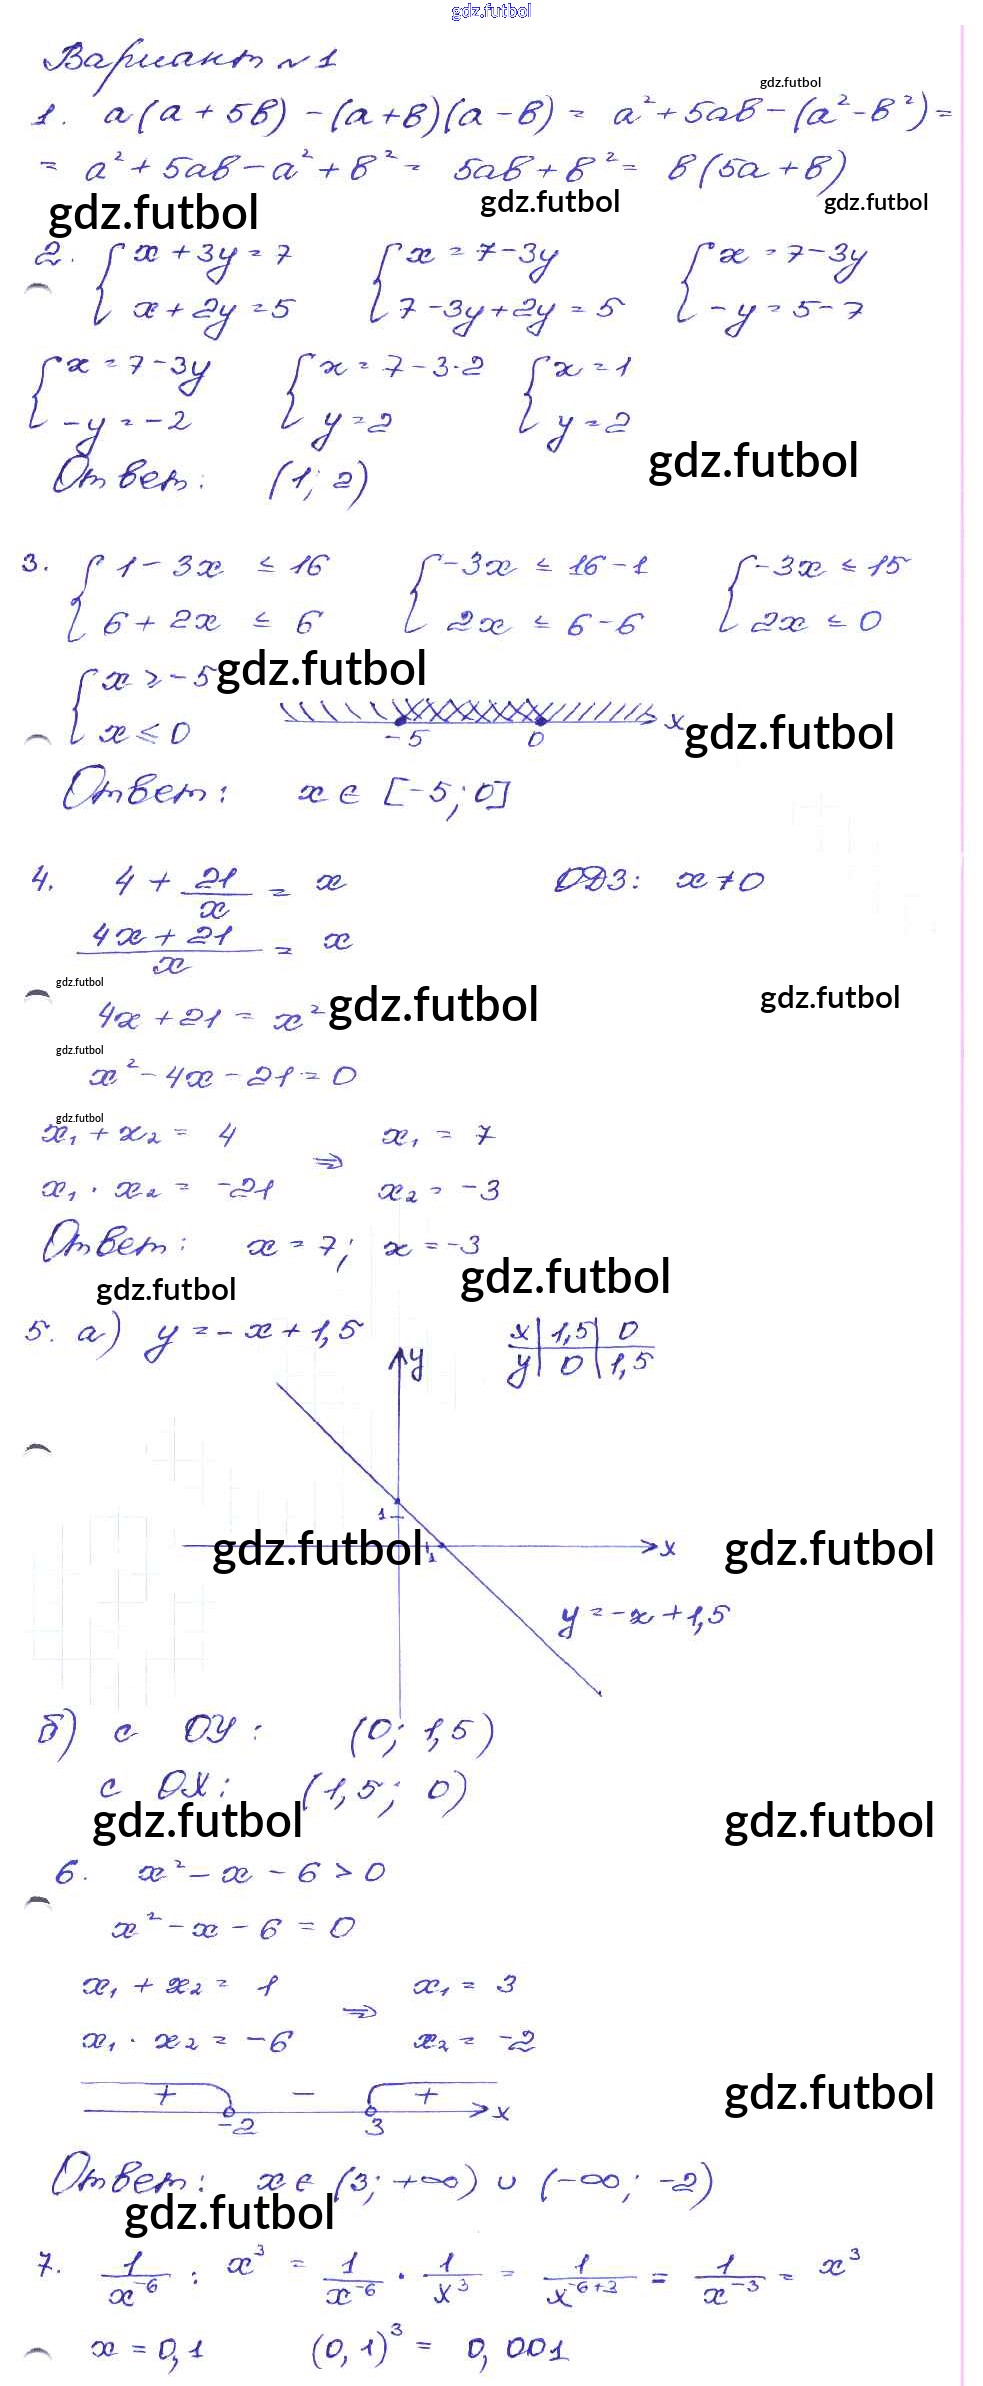 gdz.futbol
Вариант №1
gdz.futbol
1. a(a+5b)-(a+b)(a-b) = a²+5ab-(a²-b²) =
= a²+5ab-a²+b² = 5ab+b² = b(5a+b)
gdz.futbol gdz.futbol gdz.futbol
2. { x+3y=7 { x=7-3y { x=7-3y
x+2y=5 7-3y+2y=5 -y=5-7
{ x=7-3y { x=7-3·2 { x=1
-y=-2 y=2 y=2
gdz.futbol
Ответ: (1; 2)
3. { 1-3x ≤ 16 { -3x ≤ 16-1 { -3x ≤ 15
6+2x ≤ 6 2x ≤ 6-6 2x ≤ 0
{ x ≥ -5 gdz.futbol
x ≤ 0 -5 0 x gdz.futbol
Ответ: x ∈ [-5; 0]
4. 4 + 21/x = x ОДЗ: x ≠ 0
(4x+21)/x = x
gdz.futbol
4x+21 = x² gdz.futbol gdz.futbol
gdz.futbol
x²-4x-21=0
gdz.futbol
x₁+x₂ = 4 x₁ = 7
⇒
x₁·x₂ = -21 x₂ = -3
Ответ: x=7; x=-3
gdz.futbol gdz.futbol
5. а) y=-x+1,5 x | 1,5 | 0
y | 0 | 1,5
y
1
gdz.futbol 1 x gdz.futbol
y=-x+1,5
б) с ОУ: (0; 1,5)
с ОХ: (1,5; 0)
gdz.futbol gdz.futbol
6. x²-x-6>0
x²-x-6=0
x₁+x₂ = 1 x₁ = 3
⇒
x₁·x₂ = -6 x₂ = -2
+ - + gdz.futbol
-2 3 x
Ответ: x ∈ (3; +∞) ∪ (-∞; -2)
gdz.futbol
7. 1/x⁻⁶ : x³ = 1/x⁻⁶ · 1/x³ = 1/x⁻⁶⁺³ = 1/x⁻³ = x³
x=0,1 (0,1)³ = 0,001